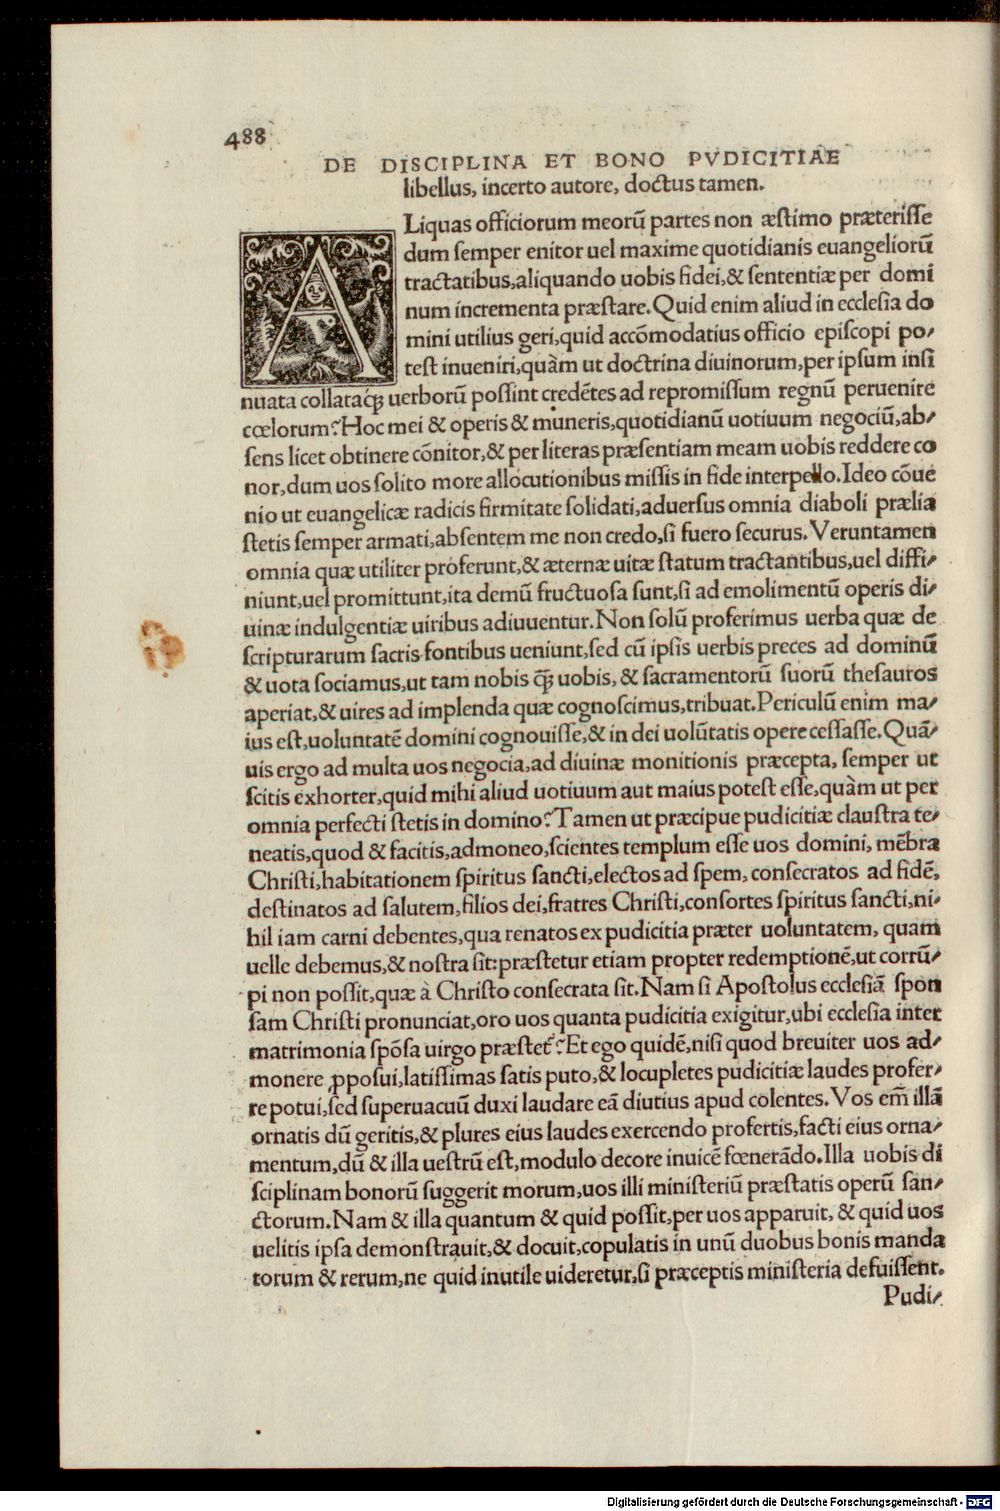 488
DE DISCIPLINA ET BONO PVDICITIAE
libellus, incerto autore, doctus tamen.
ALiquas officiorum meorũ partes non æstimo præterisse
dum semper enitor uel maxime quotidianis euangeliorũ
tractatibus,aliquando uobis fidei,& sententiæ per domi
num incrementa præstare.Quid enim aliud in ecclesia do
mini utilius geri,quid accõmodatius officio episcopi po-
test inueniri,quàm ut doctrina diuinorum,per ipsum insi
nuata collataq́ꝫ uerborũ possint credẽtes ad repromissum regnũ peruenire
cœlorum?Hoc mei & operis & muneris,quotidianũ uotiuum negociũ,ab-
sens licet obtinere cõnitor,& per literas præsentiam meam uobis reddere co
nor,dum uos solito more allocutionibus missis in fide interpello.Ideo cõue
nio ut euangelicæ radicis firmitate solidati,aduersus omnia diaboli prælia
stetis semper armati,absentem me non credo,si fuero securus.Veruntamen
omnia quæ utiliter proferunt,& æternæ uitæ statum tractantibus,uel diffi-
niunt,uel promittunt,ita demũ fructuosa sunt,si ad emolimentũ operis di-
uinæ indulgentiæ uiribus adiuuentur.Non solũ proferimus uerba quæ de
scripturarum sacris fontibus ueniunt,sed cũ ipsis uerbis preces ad dominũ
& uota sociamus,ut tam nobis q̃ꝫ uobis, & sacramentorũ suorũ thesauros
aperiat,& uires ad implenda quæ cognoscimus,tribuat.Periculũ enim ma-
ius est,uoluntatẽ domini cognouisse,& in dei uolũtatis opere cessasse.Quã-
uis ergo ad multa uos negocia,ad diuinæ monitionis præcepta, semper ut
scitis exhorter,quid mihi aliud uotiuum aut maius potest esse,quàm ut per
omnia perfecti stetis in domino?Tamen ut præcipue pudicitiæ claustra te-
neatis,quod & facitis,admoneo,scientes templum esse uos domini, mẽbra
Christi,habitationem spiritus sancti,electos ad spem, consecratos ad fidẽ,
destinatos ad salutem,filios dei,fratres Christi,consortes spiritus sancti,ni-
hil iam carni debentes,qua renatos ex pudicitia præter uoluntatem, quam
uelle debemus,& nostra sit:præstetur etiam propter redemptionẽ,ut corrũ-
pi non possit,quæ à Christo consecrata sit.Nam si Apostolus ecclesiã spon
sam Christi pronunciat,oro uos quanta pudicitia exigitur,ubi ecclesia inter
matrimonia spõsa uirgo præstet̃?Et ego quidẽ,nisi quod breuiter uos ad-
monere ꝓposui,latissimas satis puto,& locupletes pudicitiæ laudes profer-
re potui,sed superuacuũ duxi laudare eã diutius apud colentes.Vos em̃ illã
ornatis dũ geritis,& plures eius laudes exercendo profertis,facti eius orna-
mentum,dũ & illa uestrũ est,modulo decore inuicẽ fœnerãdo.Illa uobis di
sciplinam bonorũ suggerit morum,uos illi ministeriũ præstatis operũ san-
ctorum.Nam & illa quantum & quid possit,per uos apparuit, & quid uos
uelitis ipsa demonstrauit,& docuit,copulatis in unũ duobus bonis manda
torum & rerum,ne quid inutile uideretur,si præceptis ministeria defuissent.
Pudi-
Digitalisierung gefördert durch die Deutsche Forschungsgemeinschaft - DFG